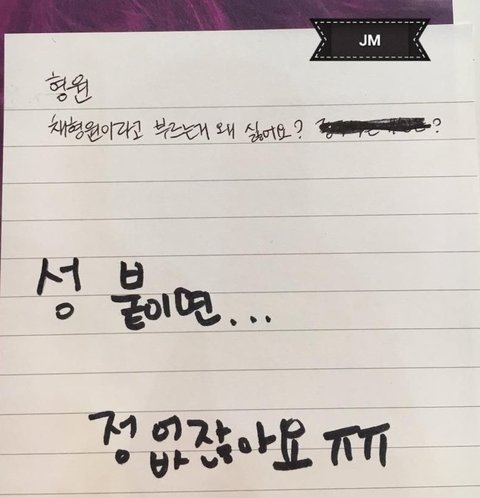 JM
형원
채형원이라고 부르는게 왜 싫어요? ?
성 붙이면...
정 없잖아요 ㅠㅠ